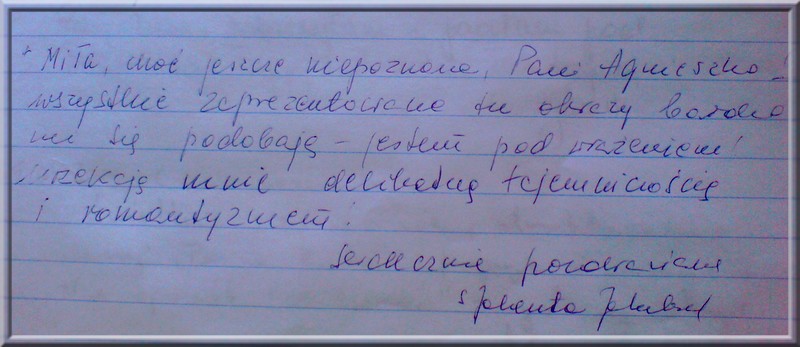 Miła, choć jeszcze niepoznana, Pani Agnieszko!
wszystkie zaprezentowane tu obrazy bardzo
mi się podobają – jestem pod wrażeniem!
Urzekają mnie delikatną tajemniczością
i romantyzmem!
Serdecznie pozdrawiam
Jolanta